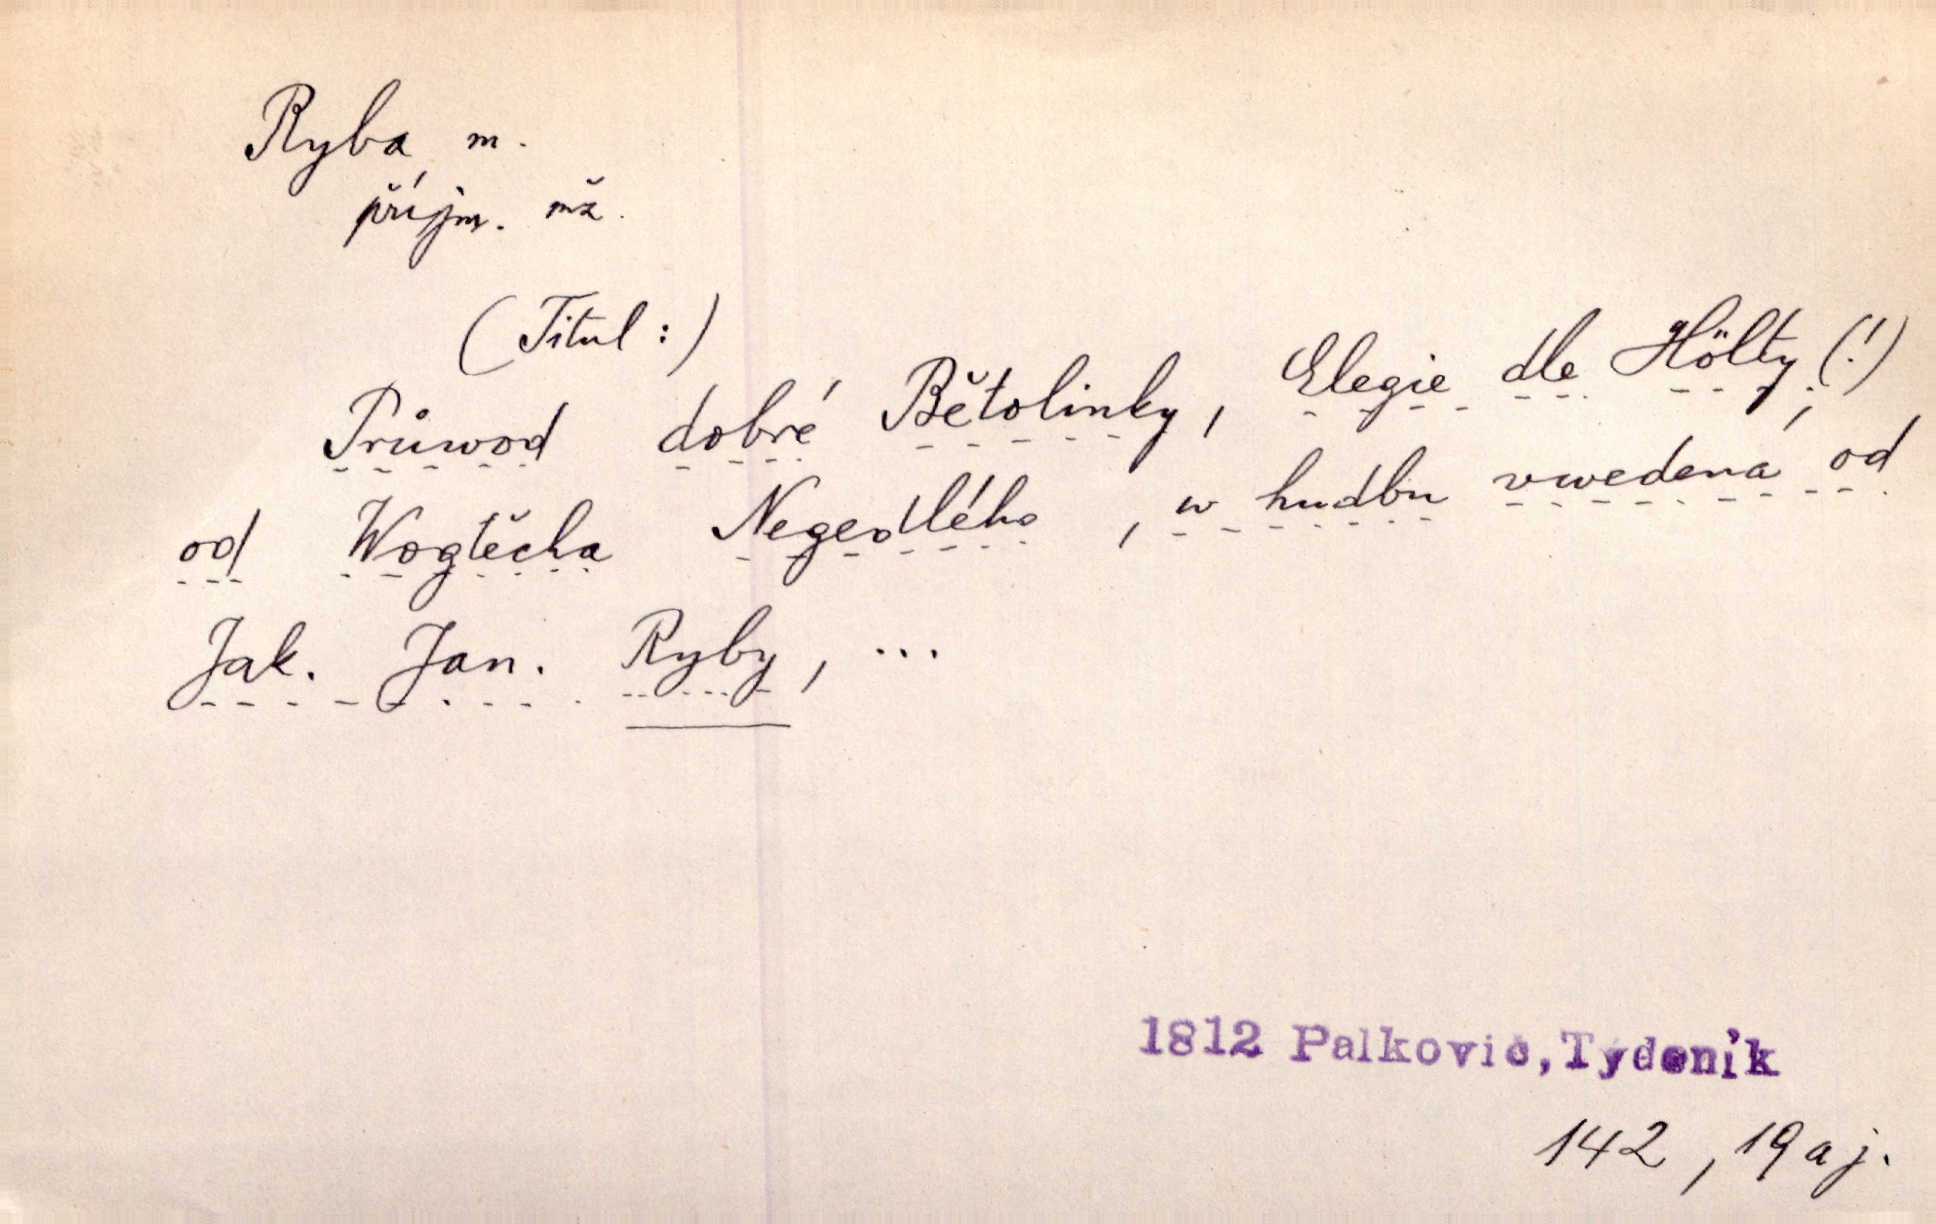 Ryba m.
příjm. mž.
(Titul:)
Průwod dobré Bětolinky, Elegie dle Hölty(!),
od Wogtěcha Negedlého, w hudbu vwedená od
Jak. Jan. Ryby, ...
1812 Palkovič, Týdeník
142, 19 aj.